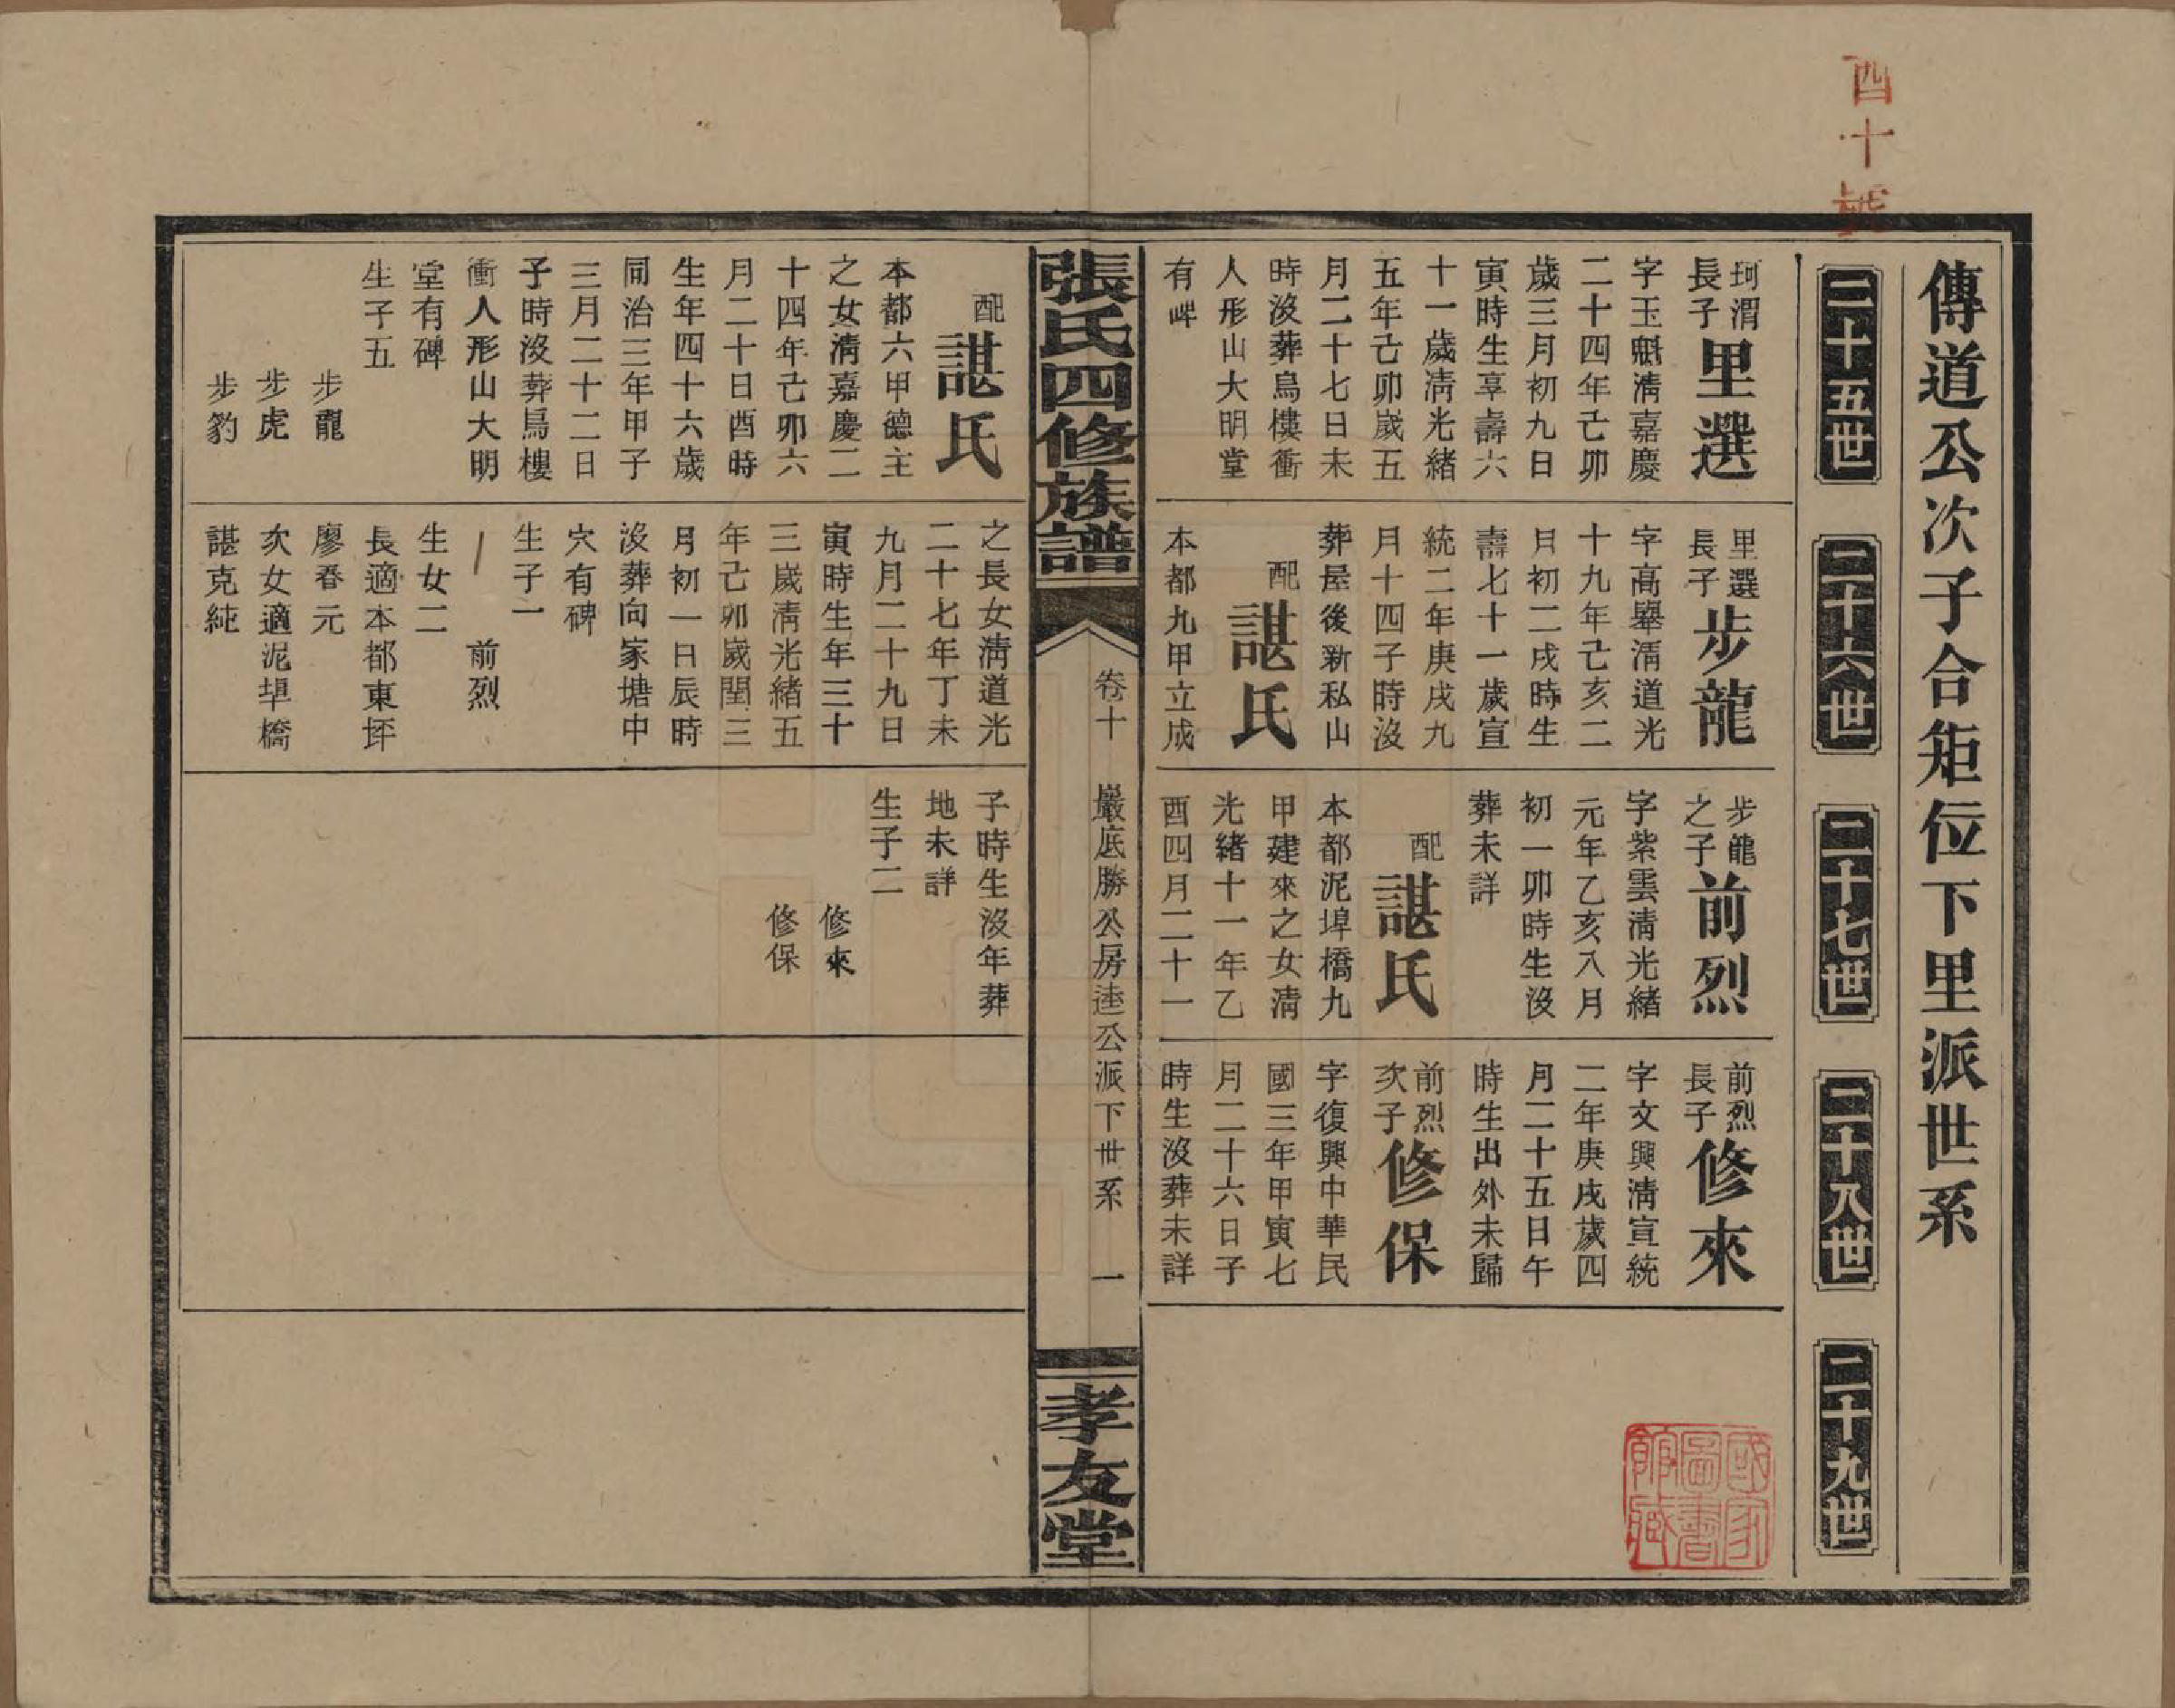 四十號
傳道公次子合矩位下里派世系
二十五世
二十六世
二十七世
二十八世
二十九世
珂渭
長子
里選
字玉魁淸嘉慶
二十四年己卯
歲三月初九日
寅時生享壽六
十一歲淸光緒
五年己卯歲五
月二十七日未
時沒葬烏樓衝
人形山大明堂
有碑
里選
長子
步龍
字高舉淸道光
十九年己亥二
月初二戌時生
壽七十一歲宣
統二年庚戌九
月十四子時沒
葬屋後新私山
配
諶氏
本都九甲立成
步龍
之子
前烈
字紫雲淸光緒
元年乙亥八月
初一卯時生沒
葬未詳
配
諶氏
本都泥埠橋九
甲建來之女淸
光緒十一年乙
酉四月二十一
前烈
長子
修來
字文興淸宣統
二年庚戌歲四
月二十五日午
時生出外未歸
前烈
次子
修保
字復興中華民
國三年甲寅七
月二十六日子
時生沒葬未詳
國家
圖書
館藏
張氏四修族譜
卷十
巖底勝公房逵公派下世系
一
孝友堂
配
諶氏
本都六甲德主
之女淸嘉慶二
十四年己卯六
月二十日酉時
生年四十六歲
同治三年甲子
三月二十二日
子時沒葬烏樓
衝人形山大明
堂有碑
生子五
步龍
步虎
步豹
之長女淸道光
二十七年丁未
九月二十九日
寅時生年三十
三歲淸光緒五
年己卯歲閏三
月初一日辰時
沒葬向家塘中
穴有碑
生子一
前烈
生女二
長適本都東坪
廖春元
次女適泥埠橋
諶克純
子時生沒年葬
地未詳
生子二
修來
修保